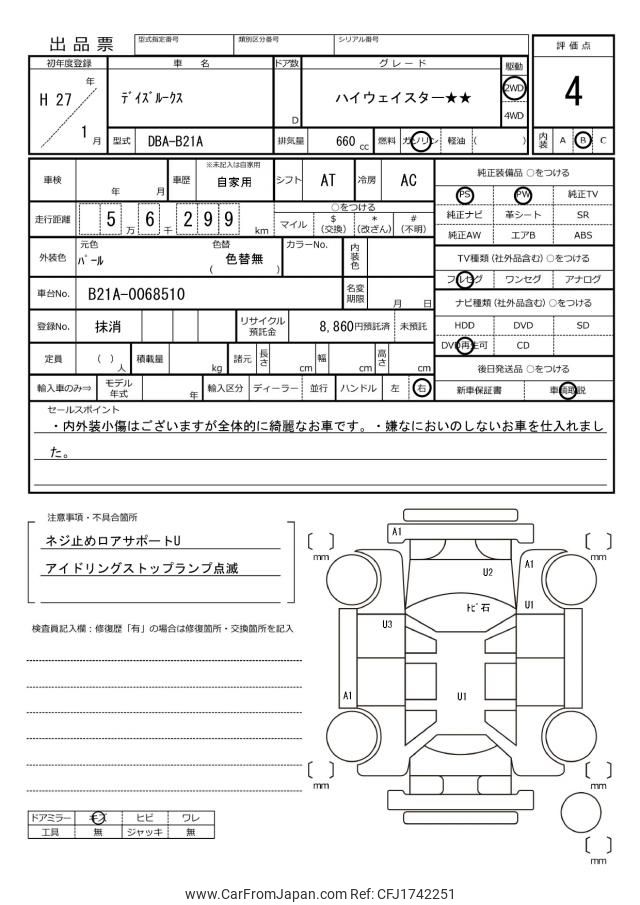 出品票
型式指定番号 類別区分番号 シリアル番号
評価点
4
内装 A B C
初年度登録 車名 ドア数 グレード 駆動
H 27 年 1 月
ﾃﾞｲｽﾞﾙｰｸｽ
D
ハイウェイスター★★
2WD
4WD
型式 DBA-B21A 排気量 660 cc 燃料 ガソリン 軽油 ( )
車検 年 月 車歴 ※未記入は自家用 自家用 シフト AT 冷房 AC
走行距離 5 万 6 千 2 9 9 km
○をつける
マイル $(交換) *(改ざん) #(不明)
外装色 元色 ﾊﾟｰﾙ 色替 ( 色替無 ) カラーNo. 内装色
車台No. B21A-0068510 名変期限 月 日
登録No. 抹消 リサイクル預託金 8,860円預託済 未預託
定員 ( ) 人 積載量 kg 諸元 長さ cm 幅 cm 高さ cm
輸入車のみ⇒ モデル年式 年 輸入区分 ディーラー 並行 ハンドル 左 右
純正装備品 ○をつける
PS PW 純正TV
純正ナビ 革シート SR
純正AW エアB ABS
TV種類(社外品含む)○をつける
フルセグ ワンセグ アナログ
ナビ種類(社外品含む)○をつける
HDD DVD SD
DVD再生可 CD
後日発送品 ○をつける
新車保証書 車輌取説
セールスポイント
・内外装小傷はございますが全体的に綺麗なお車です。・嫌なにおいのしないお車を仕入れまし
た。
注意事項・不具合箇所
ネジ止めロアサポートU
アイドリングストップランプ点滅
検査員記入欄：修復歴「有」の場合は修復箇所・交換箇所を記入
A1
mm
mm
U2
A1
ﾄﾋﾞ石
U1
U3
A1
U1
mm
mm
mm
ドアミラー キズ ヒビ ワレ
工具 無 ジャッキ 無
www.CarFromJapan.com Ref: CFJ1742251